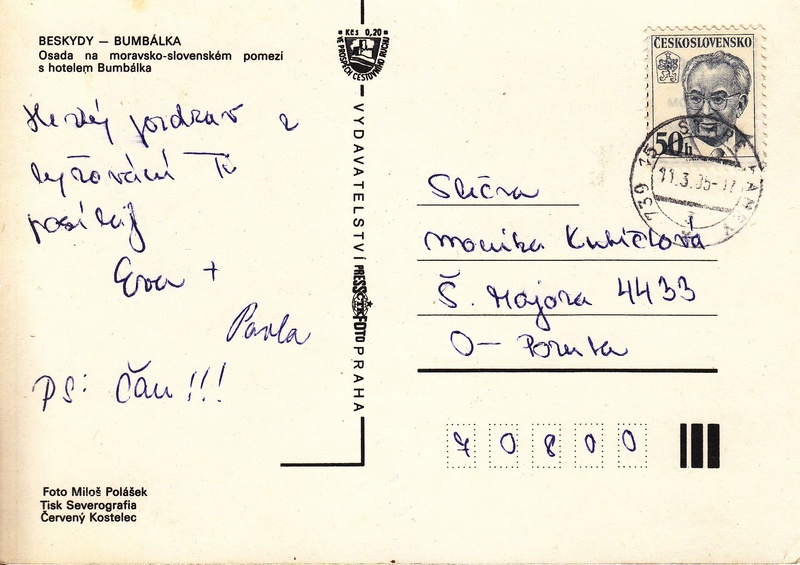 BESKYDY — BUMBÁLKA
Osada na moravsko-slovenském pomezí
s hotelem Bumbálka
Hezký pozdrav z
lyžování Ti
posílají
Eva +
Pavla
PS: Čau !!!
Foto Miloš Polášek
Tisk Severografia
Červený Kostelec
Kčs 0,20
VE PROSPĚCH CESTOVNÍHO RUCHU
VYDAVATELSTVÍ PRESSFOTO PRAHA
ČTK
ČESKOSLOVENSKO
50h
739 15 STARÉ HAMRY
11.3.85-17
Slečna
Monika Kubičlova
Š. Majora 4433
O— Poruba
70800